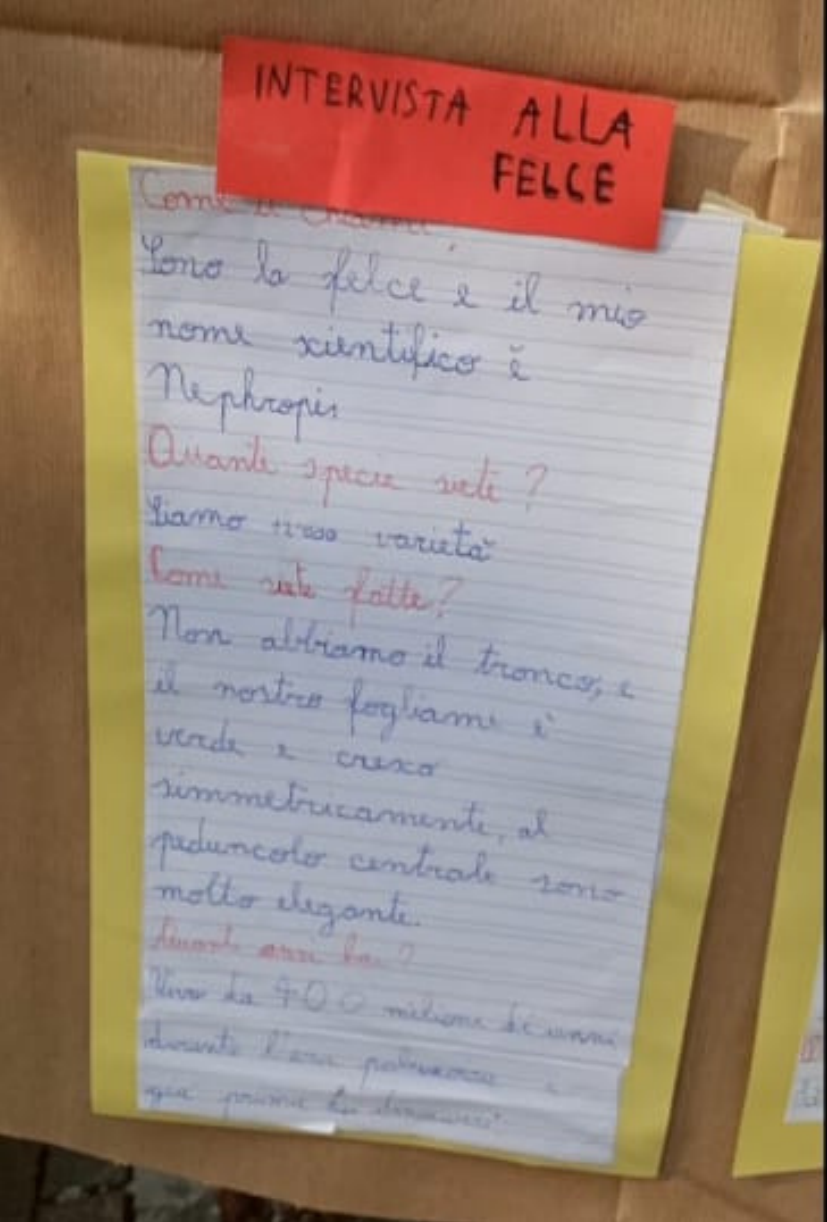 INTERVISTA ALLA
FELCE
Come ti chiami
Sono la felce e il mio
nome scientifico è
Nephropis
Quante specie siete?
Siamo varietà
Come siete fatte?
Non abbiamo il tronco, e
il nostro fogliame è
verde e cresco
simmetricamente, al
peduncolo centrale sono
molto elegante.
Quanti anni hai?
Vivo da 400 milione di anni
durante l'era e
prima